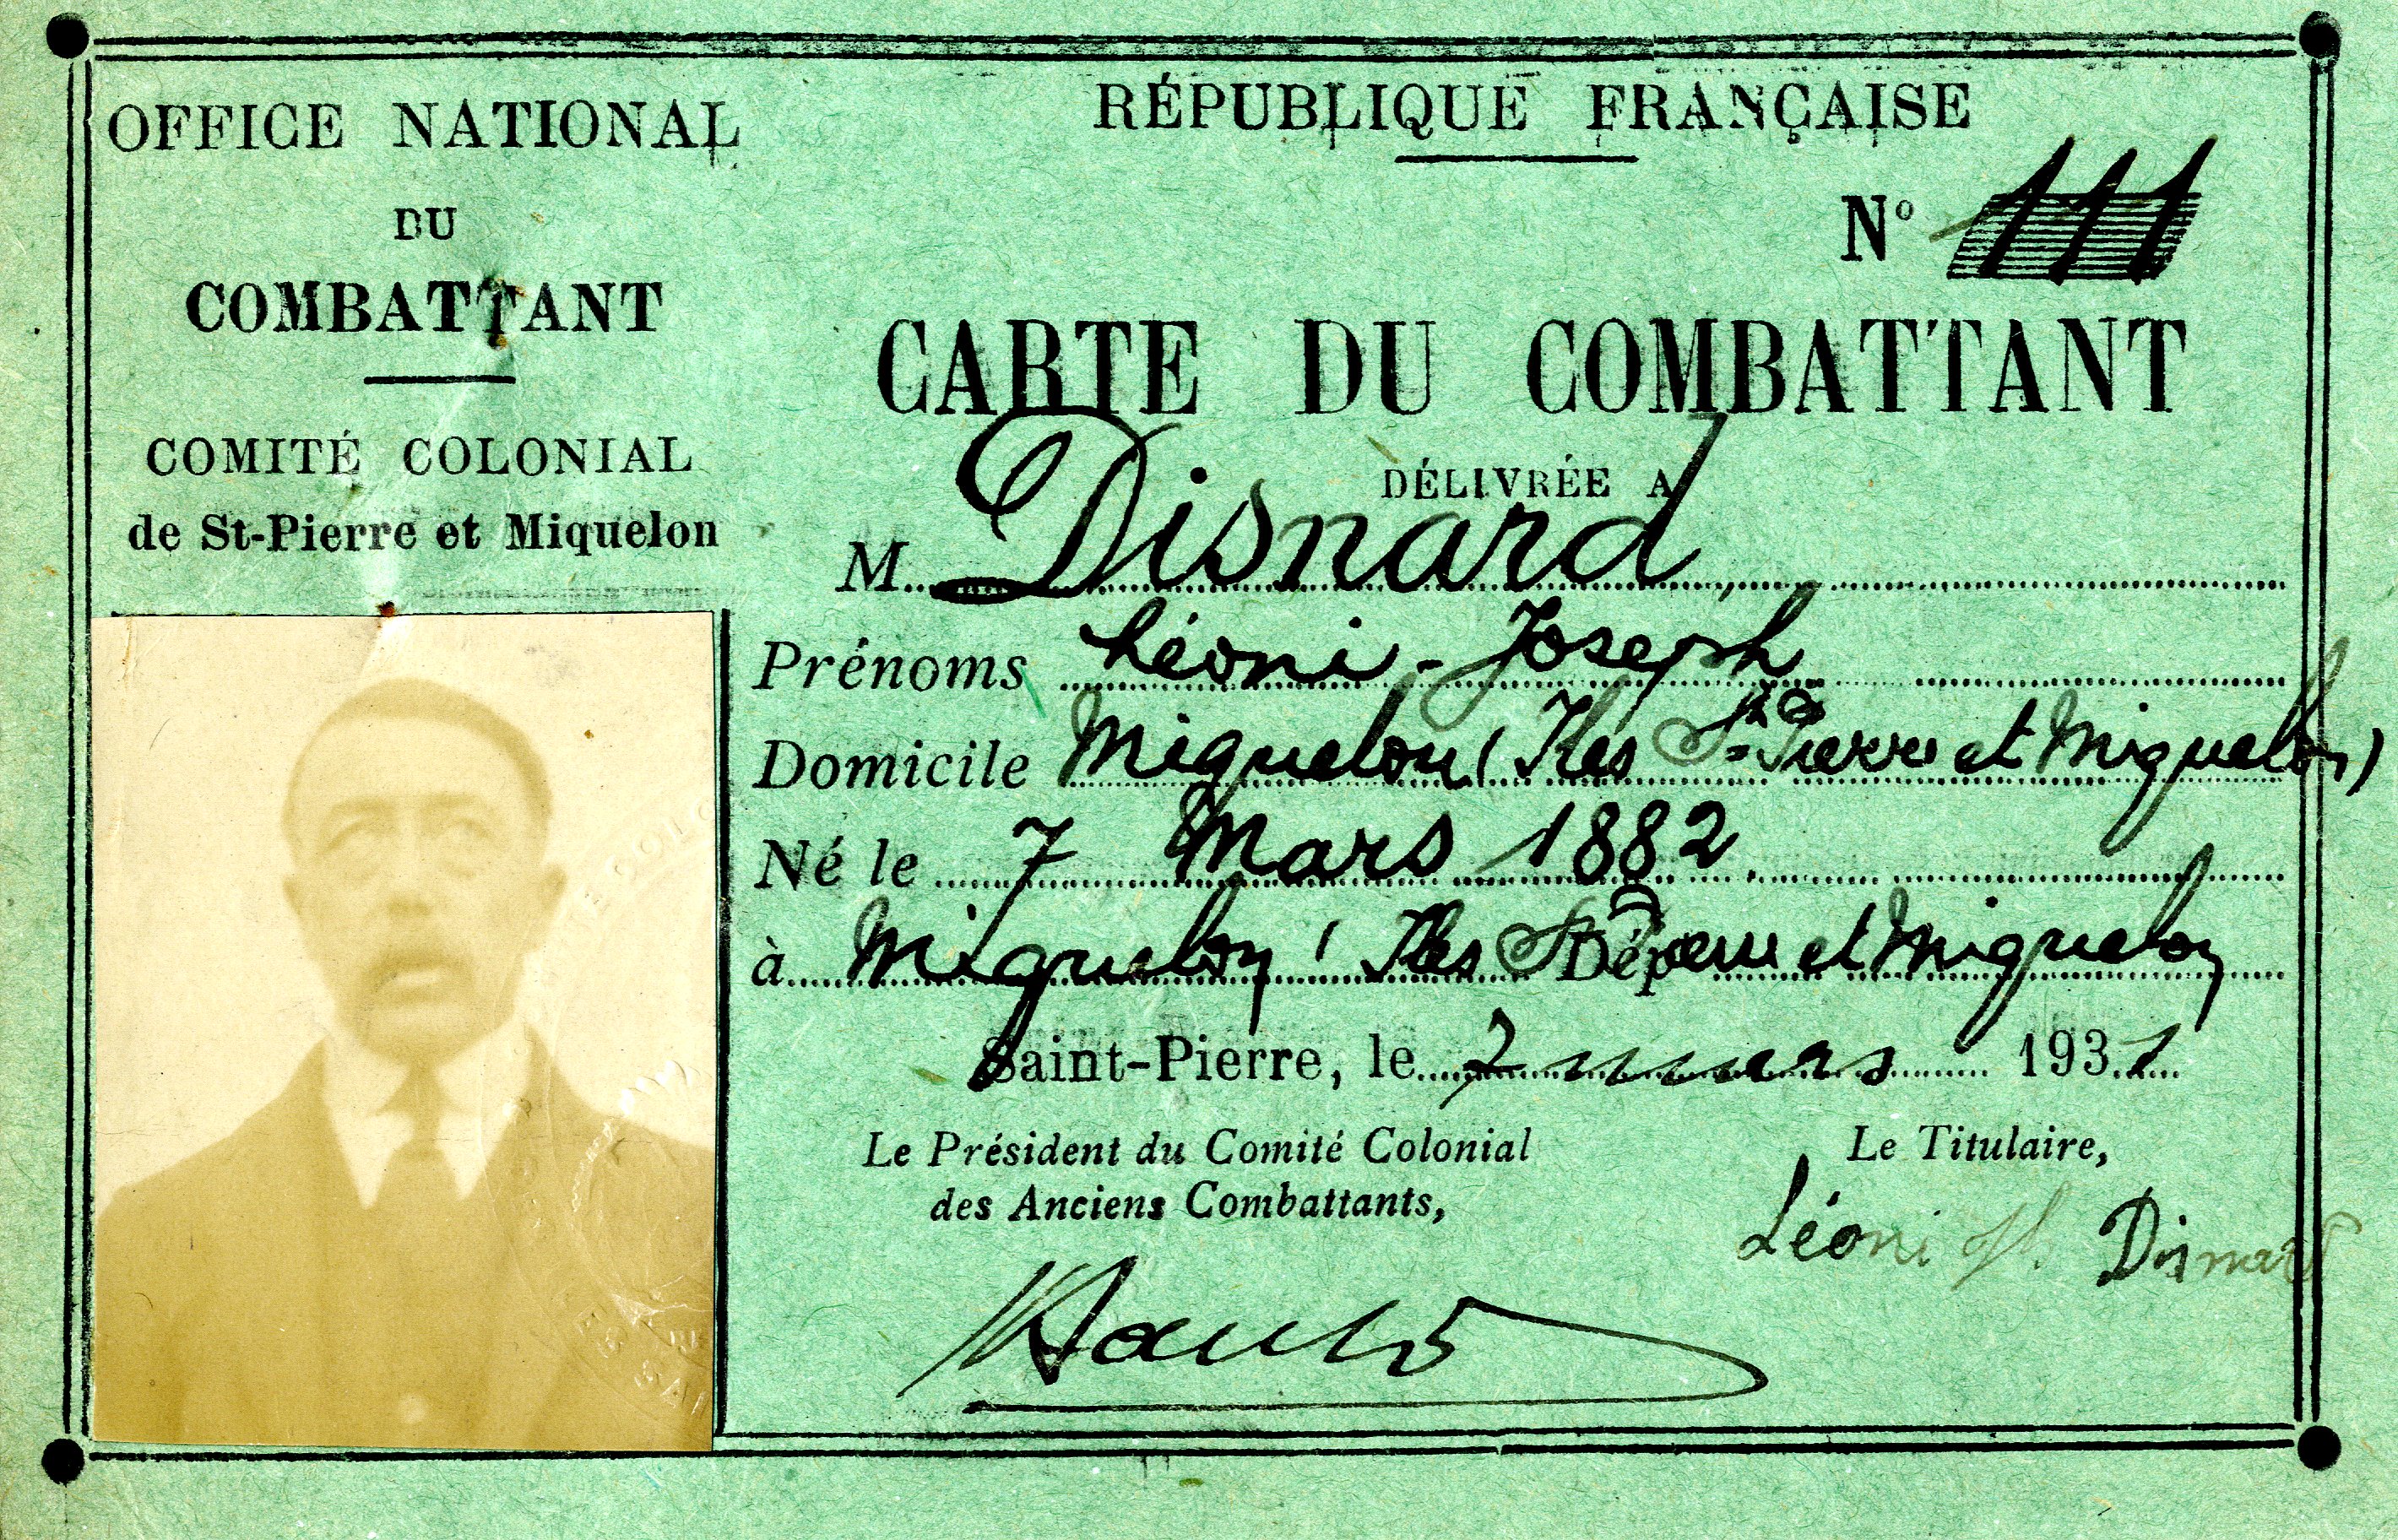 OFFICE NATIONAL
DU
COMBATTANT
COMITÉ COLONIAL
de St-Pierre et Miquelon
RÉPUBLIQUE FRANÇAISE
N° 111
CARTE DU COMBATTANT
DÉLIVRÉE A
M. Disnard
Prénoms Léoni-Joseph
Domicile Miquelon (Iles St Pierre et Miquelon)
Né le 7 Mars 1882
à Miquelon Iles St Pierre et Miquelon
Saint-Pierre, le 2 mars 1931
Le Président du Comité Colonial
des Anciens Combattants,
Le Titulaire,
Léoni Jh Disnard